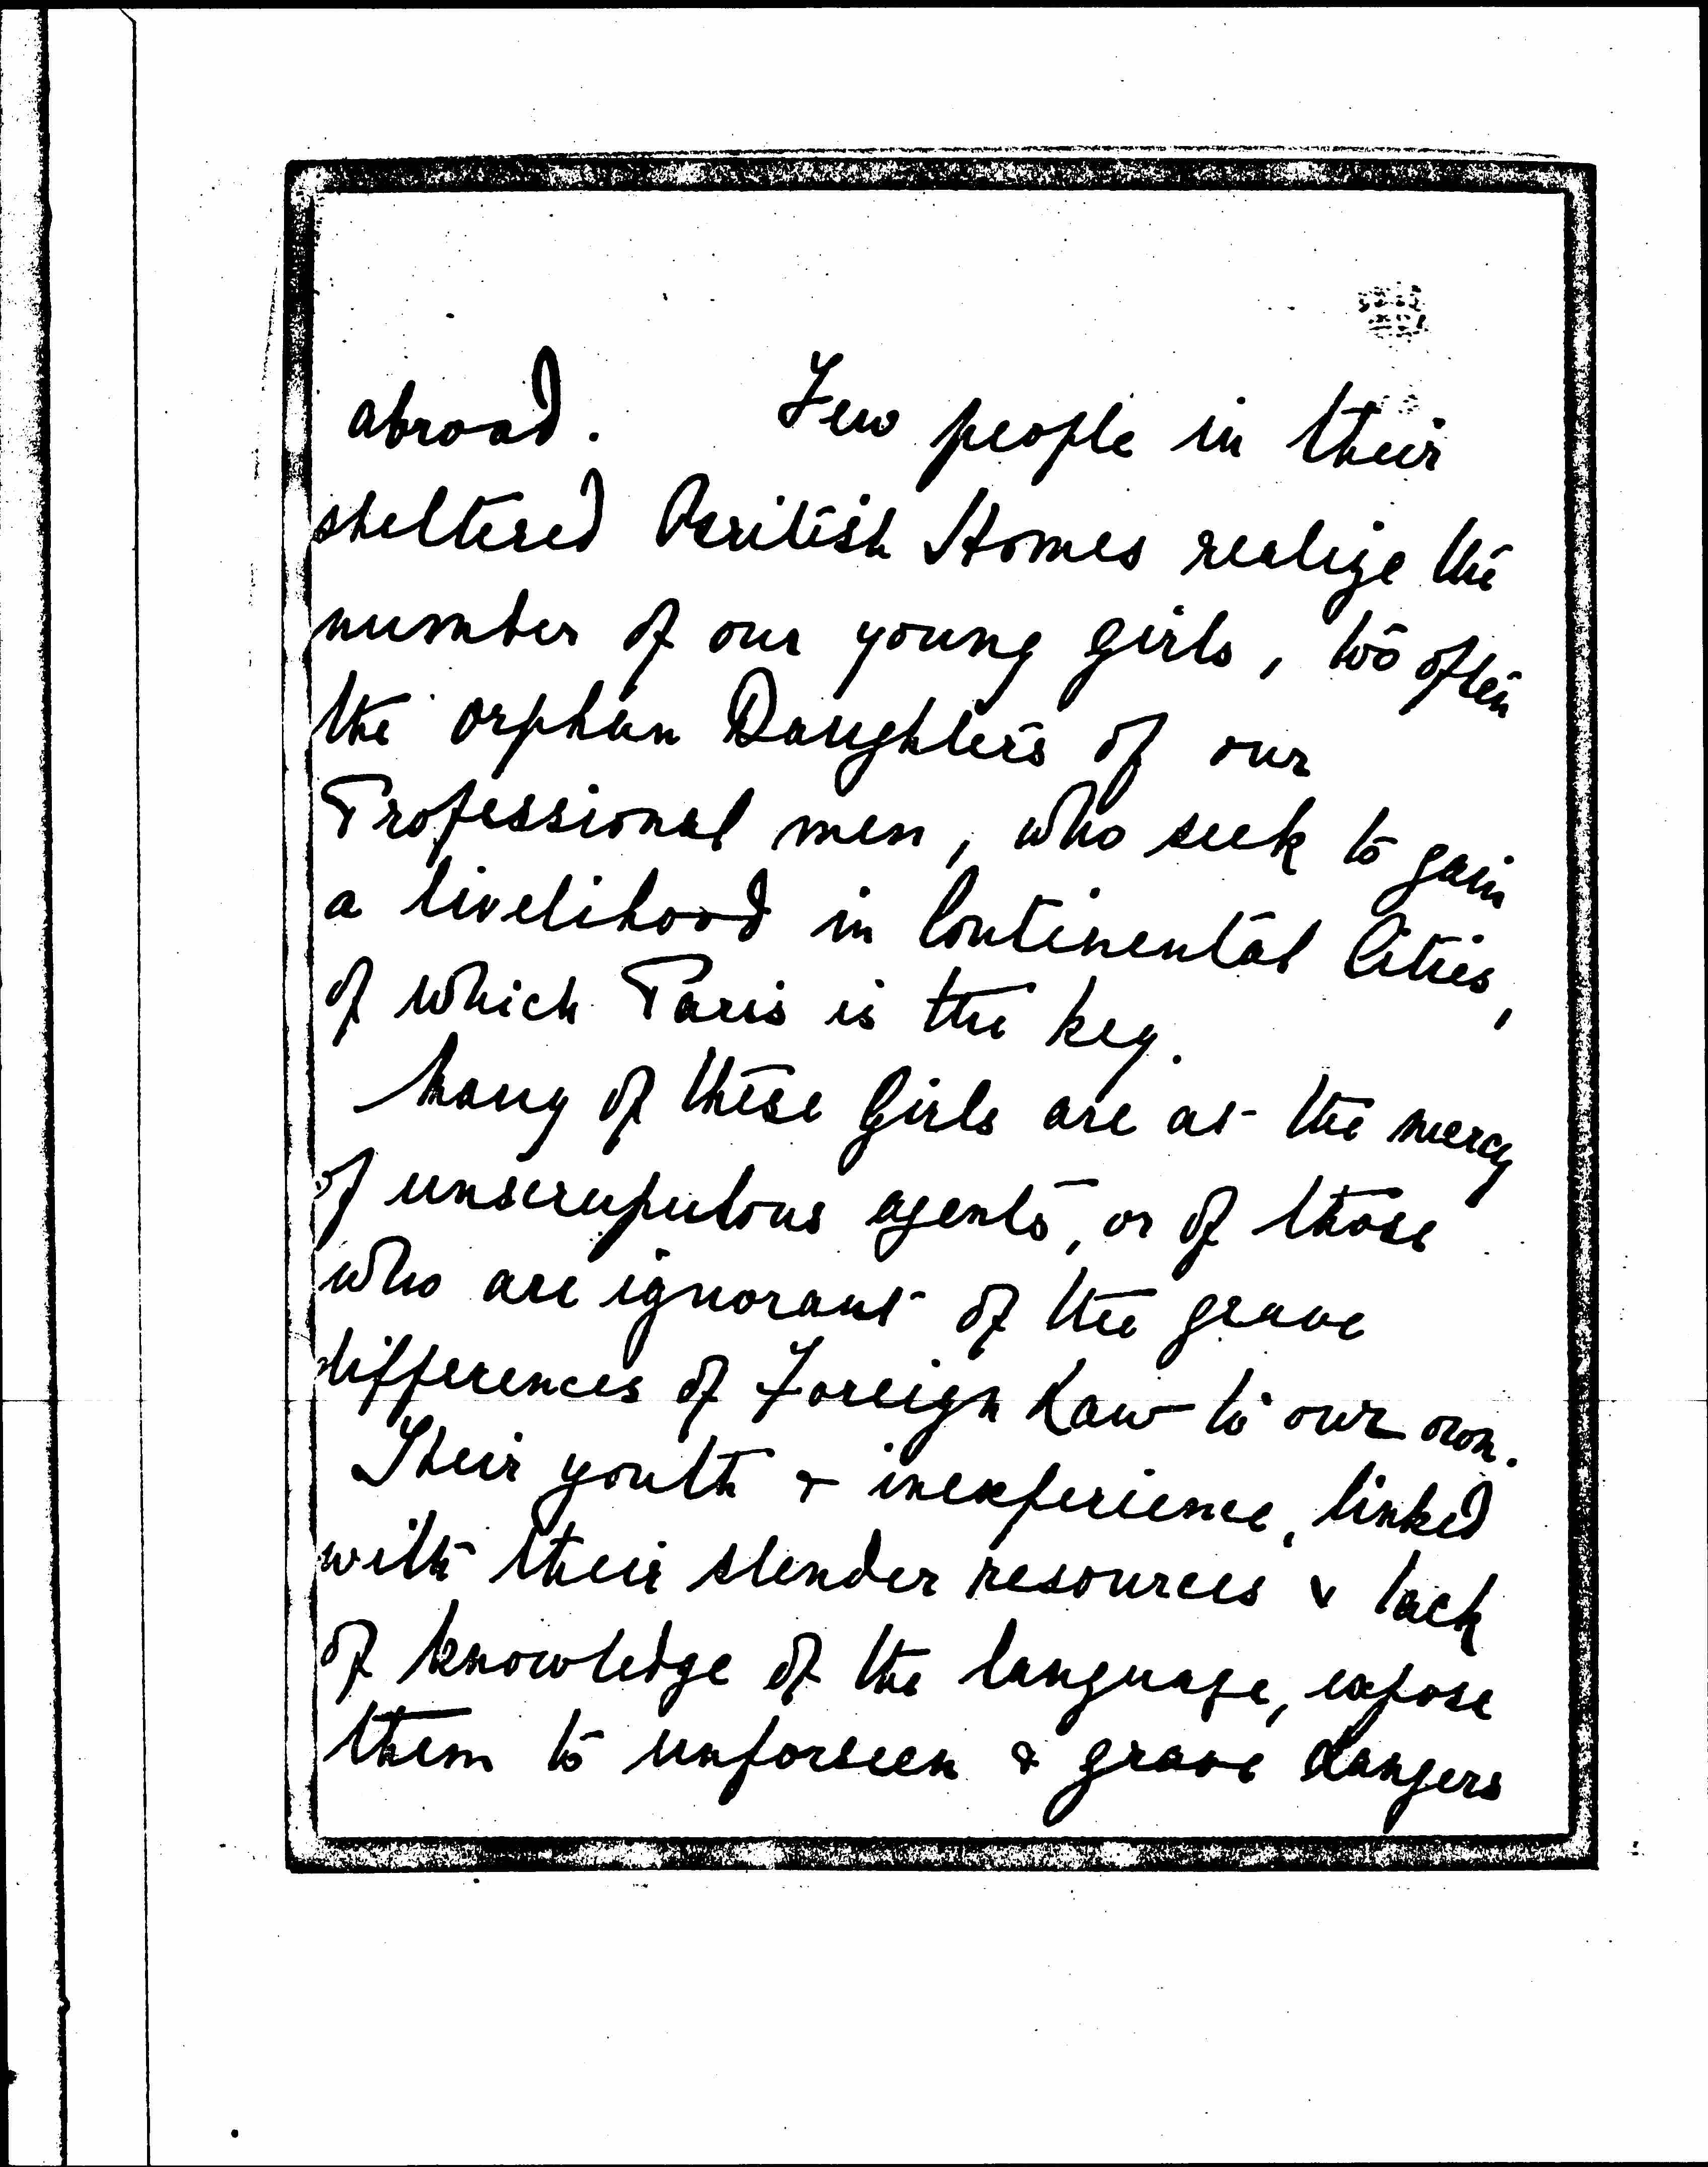 abroad. Few people in their
sheltered British Homes realize the
number of our young girls, too often
the orphan Daughters of our
Professional men, who seek to gain
a livelihood in Continental Cities,
of which Paris is the key.
Many of these Girls are at the mercy
of unscrupulous agents, or of those
who are ignorant of the grave
differences of Foreign Law to our own.
Their youth & inexperience, linked
with their slender resources & lack
of knowledge of the language, expose
them to unforseen & grave dangers